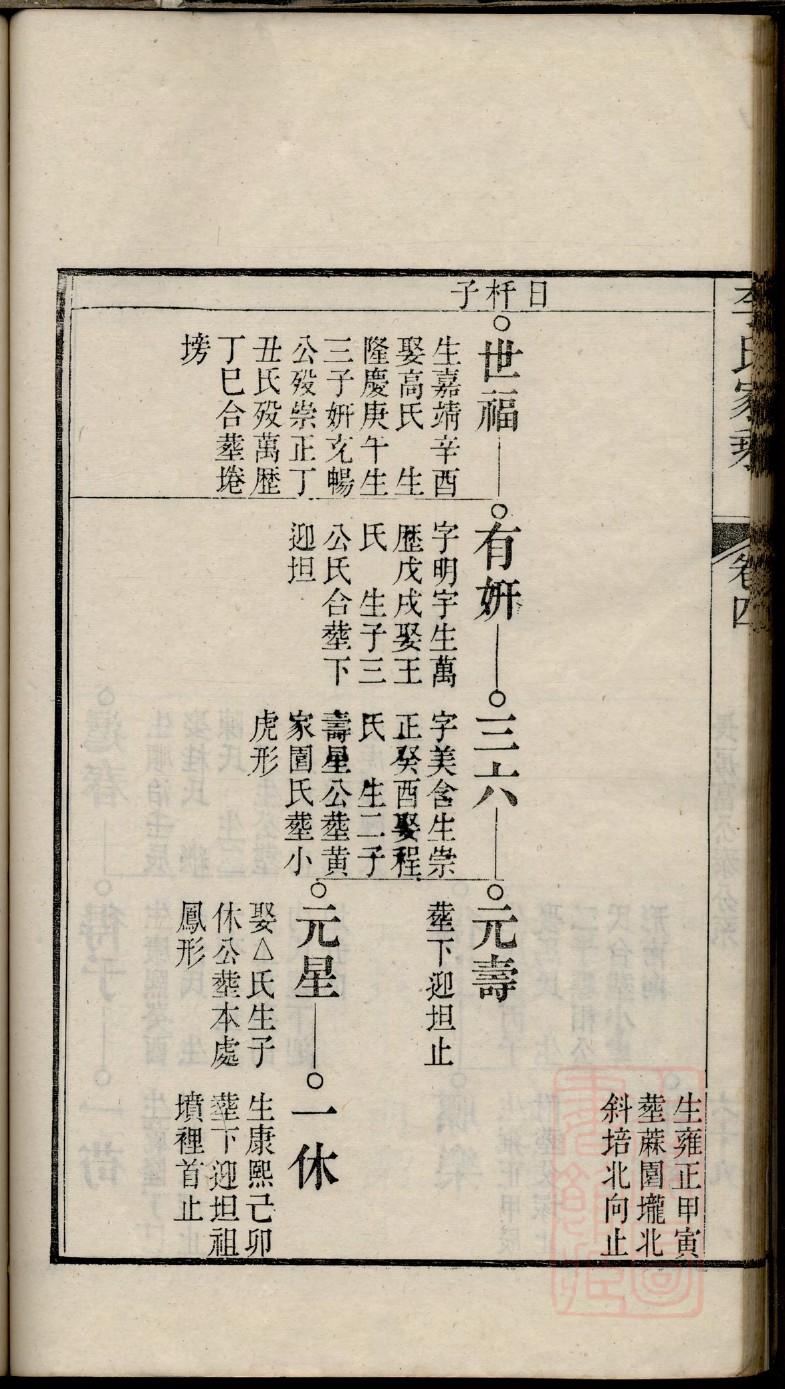 李氏家乘
卷四
生雍正甲寅
塟蔴園壠北
斜培北向止
日杆子
世福
生嘉靖辛酉
娶高氏　生
隆慶庚午生
三子妍克暢
公歿崇正丁
丑氏歿萬歴
丁巳合塟埢
塝
有妍
字明宇生萬
歴戊戌娶王
氏　生子三
公氏合塟下
迎坦
三六
字美含生崇
正癸酉娶程
氏　生二子
壽星公塟黄
家園氏塟小
虎形
元壽
塟下迎坦止
元星
娶△氏生子
休公塟本處
鳳形
一休
生康熙己卯
塟下迎坦祖
墳裡首止